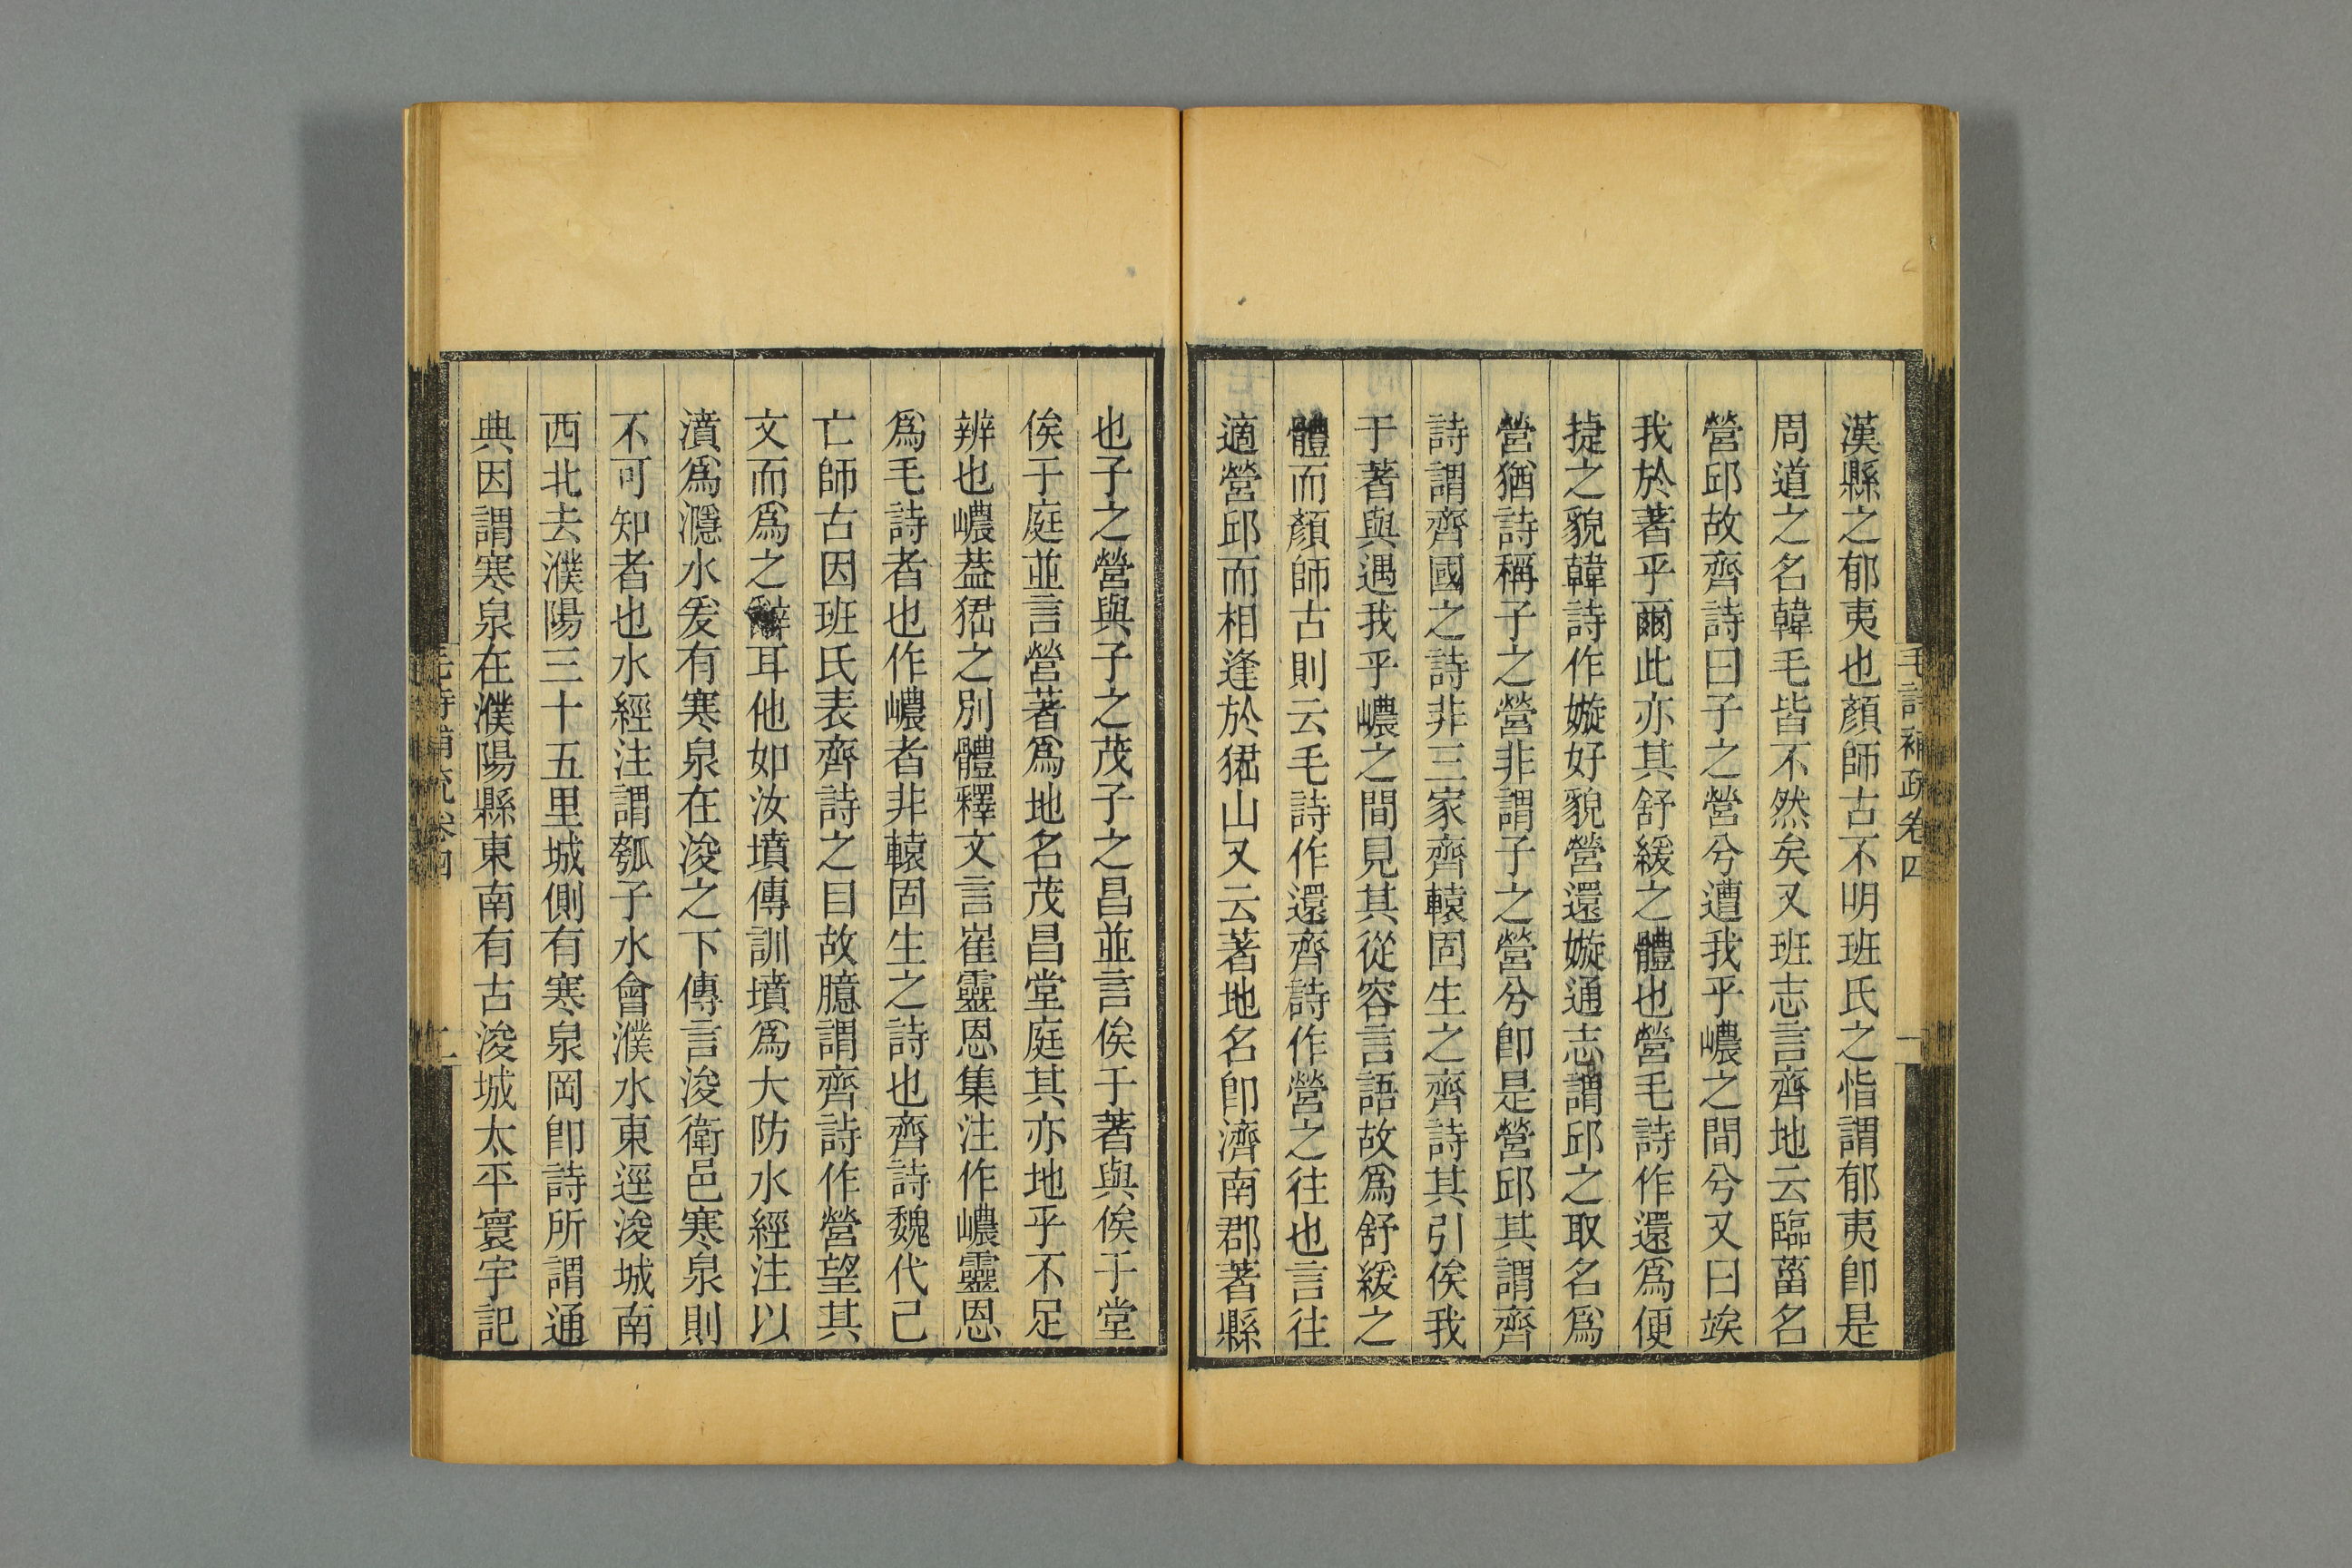 漢縣之郁夷也顏師古不明班氏之恉謂郁夷卽是
周道之名韓毛皆不然矣又班志言齊地云臨菑名
營邱故齊詩曰子之營兮遭我乎嶩之間兮又曰竢
我於著乎爾此亦其舒緩之體也營毛詩作還爲便
捷之貌韓詩作嫙好貌營還嫙通志謂邱之取名爲
營猶詩稱子之營非謂子之營兮卽是營邱其謂齊
詩謂齊國之詩非三家齊轅固生之齊詩其引俟我
于著與遇我乎嶩之間見其從容言語故爲舒緩之
體而顏師古則云毛詩作還齊詩作營之往也言往
適營邱而相逢於峱山又云著地名卽濟南郡著縣
毛詩補疏卷四
一
也子之營與子之茂子之昌並言俟于著與俟于堂
俟于庭並言營著爲地名茂昌堂庭其亦地乎不足
辨也嶩葢峱之別體釋文言崔靈恩集注作嶩靈恩
爲毛詩者也作嶩者非轅固生之詩也齊詩魏代已
亡師古因班氏表齊詩之目故臆謂齊詩作營望其
文而爲之辭耳他如汝墳傳訓墳爲大防水經注以
濆爲濦水爰有寒泉在浚之下傳言浚衛邑寒泉則
不可知者也水經注謂瓠子水會濮水東逕浚城南
西北去濮陽三十五里城側有寒泉岡卽詩所謂通
典因謂寒泉在濮陽縣東南有古浚城太平寰宇記
毛詩補疏卷四